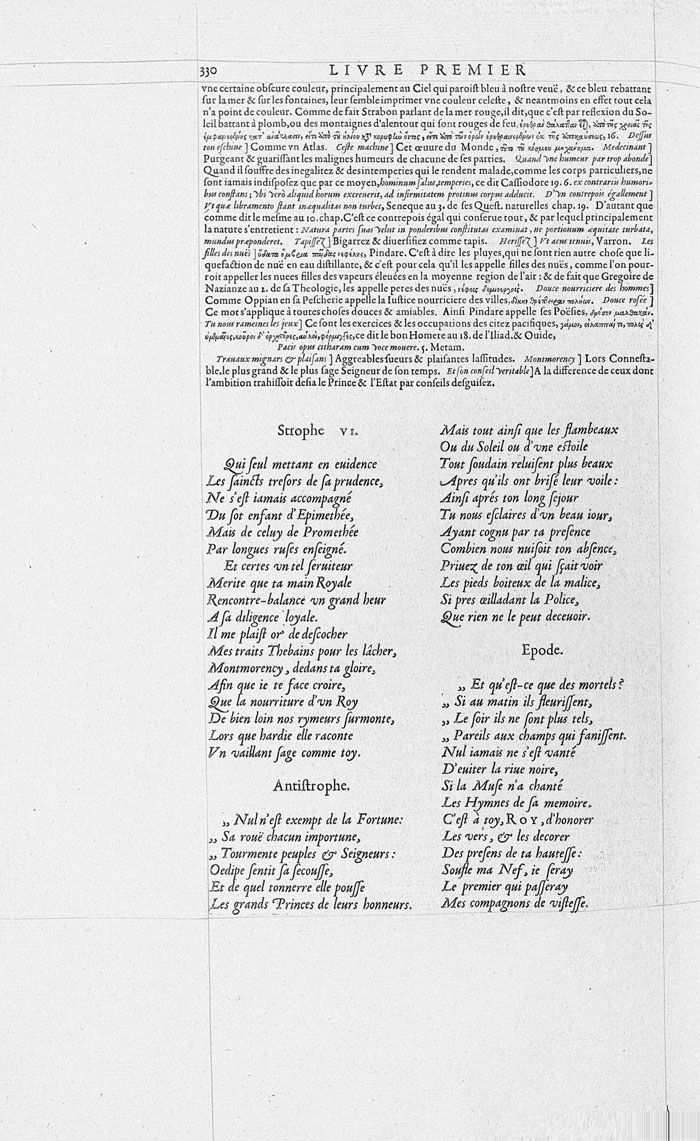 330 LIVRE PREMIER
vne certaine obscure couleur, principalement au Ciel qui paroist bleu à nostre veuë, & ce bleu rebattant
sur la mer & sur les fontaines, leur semble imprimer vne couleur celeste, & neantmoins en effet tout cela
n'a point de couleur. Comme de fait Strabon parlant de la mer rouge, il dit, que c'est par reflexion du So-
leil battant à plomb, ou des montaignes d'alentour qui sont rouges de feu,
16. Dessus
ton eschine ] Comme vn Atlas. Ceste machine ] Cet œuure du Monde, Medecinant ]
Purgeant & guarissant les malignes humeurs de chacune de ses parties. Quand vne humeur par trop abonde ]
Quand il souffre des inegalitez & desintemperies qui le rendent malade, comme les corps particuliers, ne
sont iamais indisposez que par ce moyen, hominum salus, temperies, ce dit Cassiodore 19. 6. ex contrariis humori-
bus constans; vbi verò aliquid horum excreuerit, ad infirmitatem protinus corpus adducit. D'vn contrepois égallement ]
Vt quæ libramento stant inæqualitas non turbet, Seneque au 3. de ses Quest. naturelles chap. 19. D'autant que
comme dit le mesme au 10. chap. C'est ce contrepois égal qui conserue tout, & par lequel principalement
la nature s'entretient : Natura partes suas velut in ponderibus constitutas examinat, ne portionum æquitate turbata,
mundus præponderet. Tapissez ] Bigarrez & diuersifiez comme tapis. Herissez ] Vt acus tenuis, Varron. Les
filles des nuës ] Pindare. C'est à dire les pluyes, qui ne sont rien autre chose que li-
quefaction de nuë en eau distillante, & c'est pour cela qu'il les appelle filles des nuës, comme l'on pour-
roit appeller les nuees filles des vapeurs éleuées en la moyenne region de l'air : & de fait que Gregoire de
Nazianze au 2. de sa Theologie, les appelle peres des nuës, Douce nourriciere des hommes ]
Comme Oppian en sa Pescherie appelle la Iustice nourriciere des villes, Douce rosée ]
Ce mot s'applique à toutes choses douces & amiables. Ainsi Pindare appelle ses Poësies,
Tu nous rameines les jeux ] Ce sont les exercices & les occupations des citez pacifiques,
ce dit le bon Homere au 18. de l'Iliad. & Ouide,
Pacis opus citharam cum voce mouere. 5. Metam.
Trauaux mignars & plaisans ] Aggreables sueurs & plaisantes lassitudes. Montmorency ] Lors Connesta-
ble, le plus grand & le plus sage Seigneur de son temps. Et son conseil veritable ] A la difference de ceux dont
l'ambition trahissoit desia le Prince & l'Estat par conseils desguisez.
Strophe VI.
Qui seul mettant en euidence
Les saincts tresors de sa prudence,
Ne s'est iamais accompagné
Du sot enfant d'Epimethée,
Mais de celuy de Promethée
Par longues ruses enseigné.
Et certes vn tel seruiteur
Merite que ta main Royale
Rencontre-balance vn grand heur
A sa diligence loyale.
Il me plaist or' de descocher
Mes traits Thebains pour les lâcher,
Montmorency, dedans ta gloire,
Afin que ie te face croire,
Que la nourriture d'vn Roy
De bien loin nos rymeurs surmonte,
Lors que hardie elle raconte
Vn vaillant sage comme toy.
Antistrophe.
„ Nul n'est exempt de la Fortune:
„ Sa rouë chacun importune,
„ Tourmente peuples & Seigneurs:
Oedipe sentit sa secousse,
Et de quel tonnerre elle pousse
Les grands Princes de leurs honneurs.
Mais tout ainsi que les flambeaux
Ou du Soleil ou d'vne estoile
Tout soudain reluisent plus beaux
Apres qu'ils ont brisé leur voile:
Ainsi aprés ton long sejour
Tu nous esclaires d'vn beau iour,
Ayant cognu par ta presence
Combien nous nuisoit ton absence,
Priuez de ton œil qui sçait voir
Les pieds boiteux de la malice,
Si pres œilladant la Police,
Que rien ne le peut deceuoir.
Epode.
„ Et qu'est-ce que des mortels?
„ Si au matin ils fleurissent,
„ Le soir ils ne sont plus tels,
„ Pareils aux champs qui fanissent.
Nul iamais ne s'est vanté
D'euiter la riue noire,
Si la Muse n'a chanté
Les Hymnes de sa memoire.
C'est à toy, ROY, d'honorer
Les vers, & les decorer
Des presens de ta hautesse:
Soufle ma Nef, ie seray
Le premier qui passeray
Mes compagnons de vistesse.